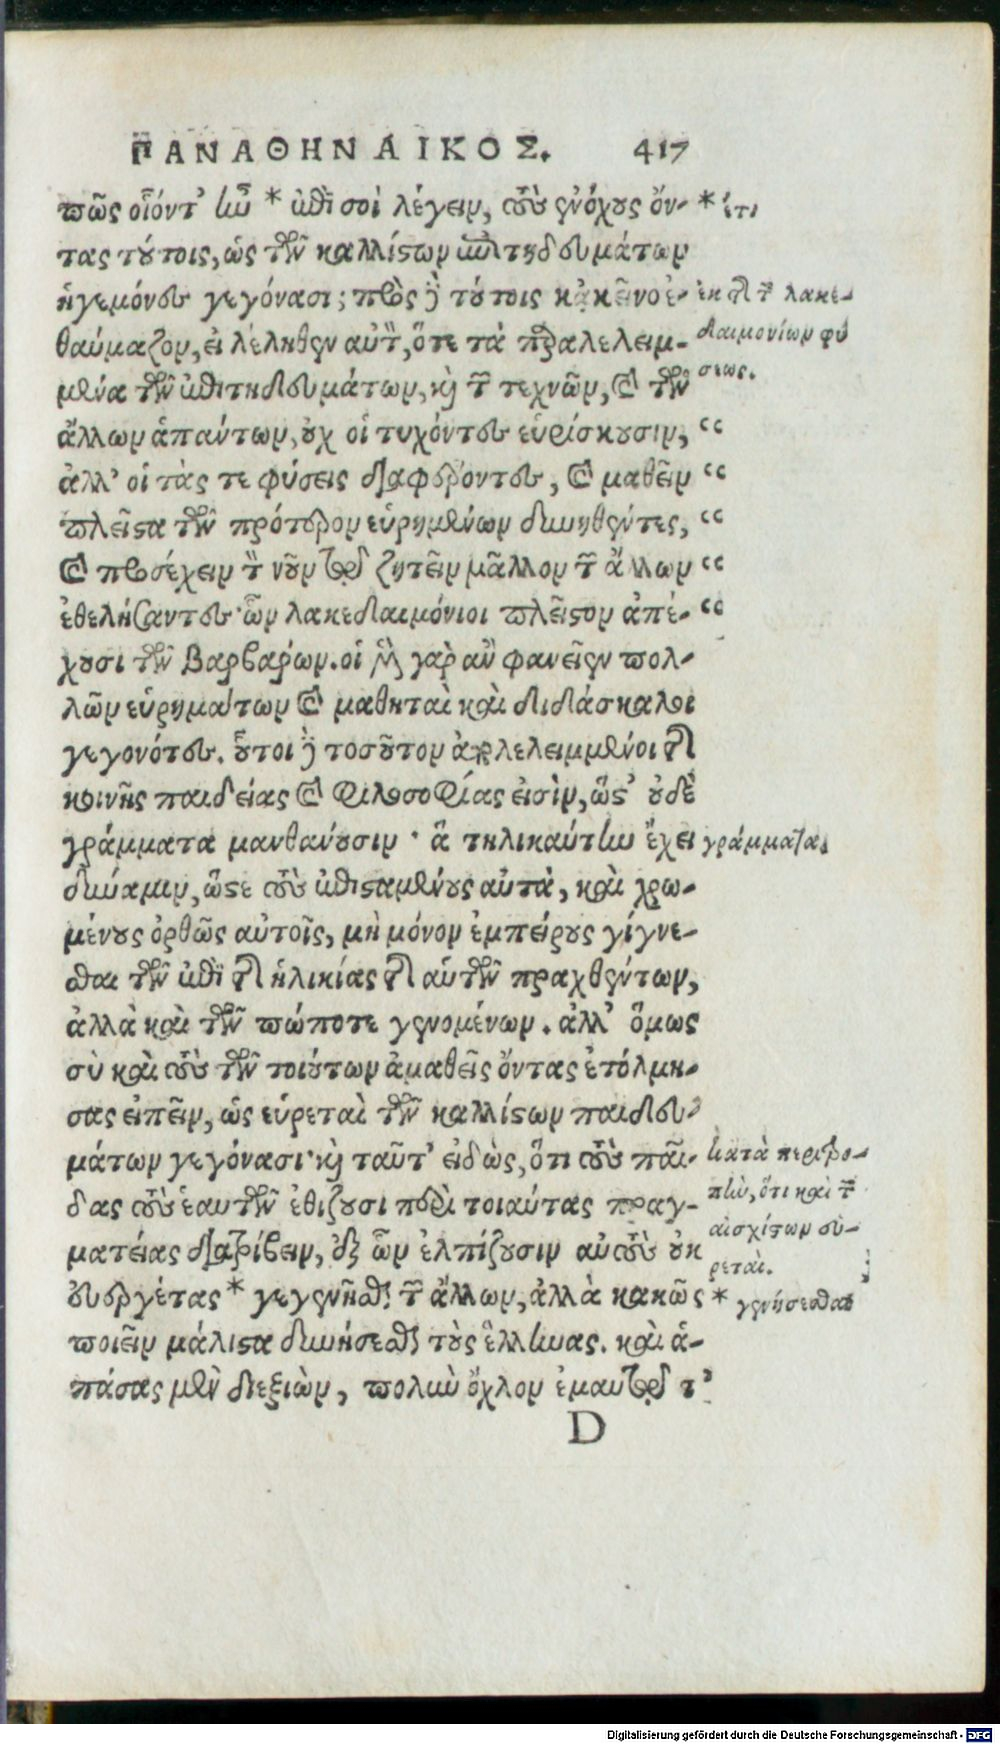 ΠΑΝΑΘΗΝΑΙΚΟΣ. 417
πῶς οἷόντ' ἦν * ἐπὶ σοὶ λέγειν, τοὺς ἐνόχους ὄν- * ἔτι
τας τούτοις, ὡς τῶν καλλίστων ἐπιτηδευμάτων
ἡγεμόνες γεγόνασι; πρὸς δὲ τούτοις κἀκεῖνο ἐ- ἐκ τῆς τῶν λακε-
θαύμαζον, εἰ λέληθεν αὐτὸν, ὅτε τὰ παραλελειμ- δαιμονίων φύ
μένα τῶν ἐπιτηδευμάτων, καὶ τῶν τεχνῶν, καὶ τῶν σεως.
ἄλλων ἁπάντων, οὐχ οἱ τυχόντες εὑρίσκουσιν, “
ἀλλ' οἱ τάς τε φύσεις διαφέροντες, καὶ μαθεῖν “
πλεῖστα τῶν πρότερον εὑρημένων δυνηθέντες, “
καὶ προσέχειν τὸν νοῦν τῷ ζητεῖν μᾶλλον τῶν ἄλλων “
ἐθελήσαντες· ὧν λακεδαιμόνιοι πλεῖστον ἀπέ- “
χουσι τῶν βαρβάρων. οἱ μὲν γὰρ ἂν φανεῖεν πολ-
λῶν εὑρημάτων καὶ μαθηταὶ καὶ διδάσκαλοι
γεγονότες. οὗτοι δὲ τοσοῦτον ἀπολελειμμένοι τῆς
κοινῆς παιδείας καὶ φιλοσοφίας εἰσὶν, ὥστ' οὐδὲ
γράμματα μανθάνουσιν · ἃ τηλικαύτην ἔχει γράμματα.
δύναμιν, ὥστε τοὺς ἐπισταμένους αὐτὰ, καὶ χρω-
μένους ὀρθῶς αὐτοῖς, μὴ μόνον ἐμπείρους γίγνε-
σθαι τῶν ἐπὶ τῆς ἡλικίας τῆς αὑτῶν πραχθέντων,
ἀλλὰ καὶ τῶν πώποτε γενομένων. ἀλλ' ὅμως
σὺ καὶ τοὺς τῶν τοιούτων ἀμαθεῖς ὄντας ἐτόλμη-
σας εἰπεῖν, ὡς εὑρεταὶ τῶν καλλίστων παιδευ-
μάτων γεγόνασι· καὶ ταῦτ' εἰδὼς, ὅτι τοὺς παῖ- κατὰ περιτρο-
δας τοὺς ἑαυτῶν ἐθίζουσι περὶ τοιαύτας πραγ- πὴν, ὅτι καὶ τῶν
ματείας διατρίβειν, ἐξ ὧν ἐλπίζουσιν αὐτοὺς οὐκ αἰσχίστων εὑ-
ρεταὶ.
εὐεργέτας * γεγενῆσθαι τῶν ἄλλων, ἀλλὰ κακῶς * γενήσεσθαι
ποιεῖν μάλιστα δυνήσεσθαι τοὺς ἕλληνας. καὶ ἁ-
πάσας μὲν διεξιὼν, πολὺν ὄχλον ἐμαυτῷ τ'
D
Digitalisierung gefördert durch die Deutsche Forschungsgemeinschaft - DFG